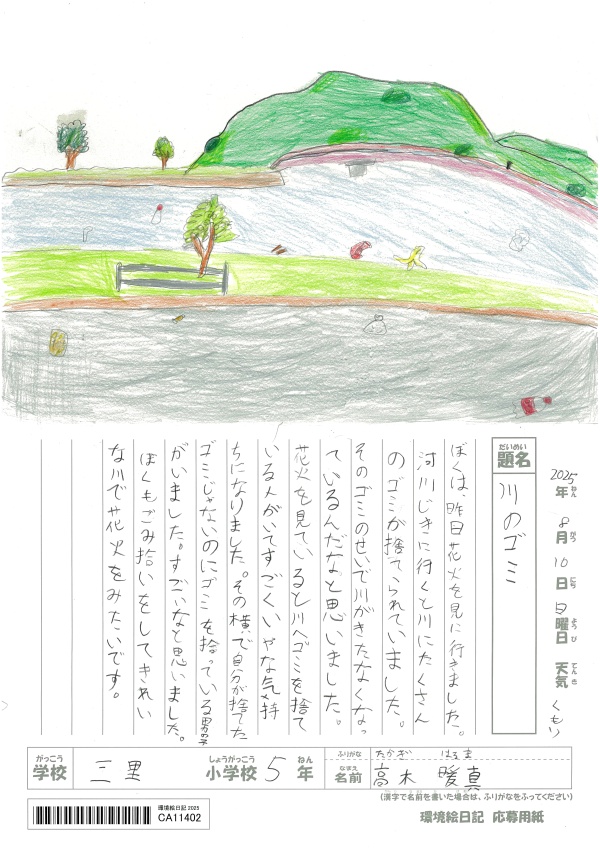 2025年ねん 8月がつ 10日にち 日曜日ようび 天気てんき くもり
題名だいめい
川のゴミ
ぼくは昨日花火を見に行きました。
河川じきに行くと川にたくさん
のゴミが捨てられていました。
そのゴミのせいで川がきたなくなっ
ているんだなと思いました。
花火を見ていると川へゴミを捨て
いる人がいてすごくいやな気持
ちになりました。その横で自分が捨てた
ゴミじゃないのにゴミを拾っている男の子
がいました。すごいなと思いました。
ぼくもごみ拾いをしてきれい
な川で花火をみたいです。
がっこう
学校 三里 小学校しょうがっこう 5 年ねん
ふりがな たかぎ はるま
名前なまえ 高木 暖真
(漢字で名前を書いた場合は、ふりがなをふってください)
環境絵日記 2025
CA11402
環境絵日記 応募用紙